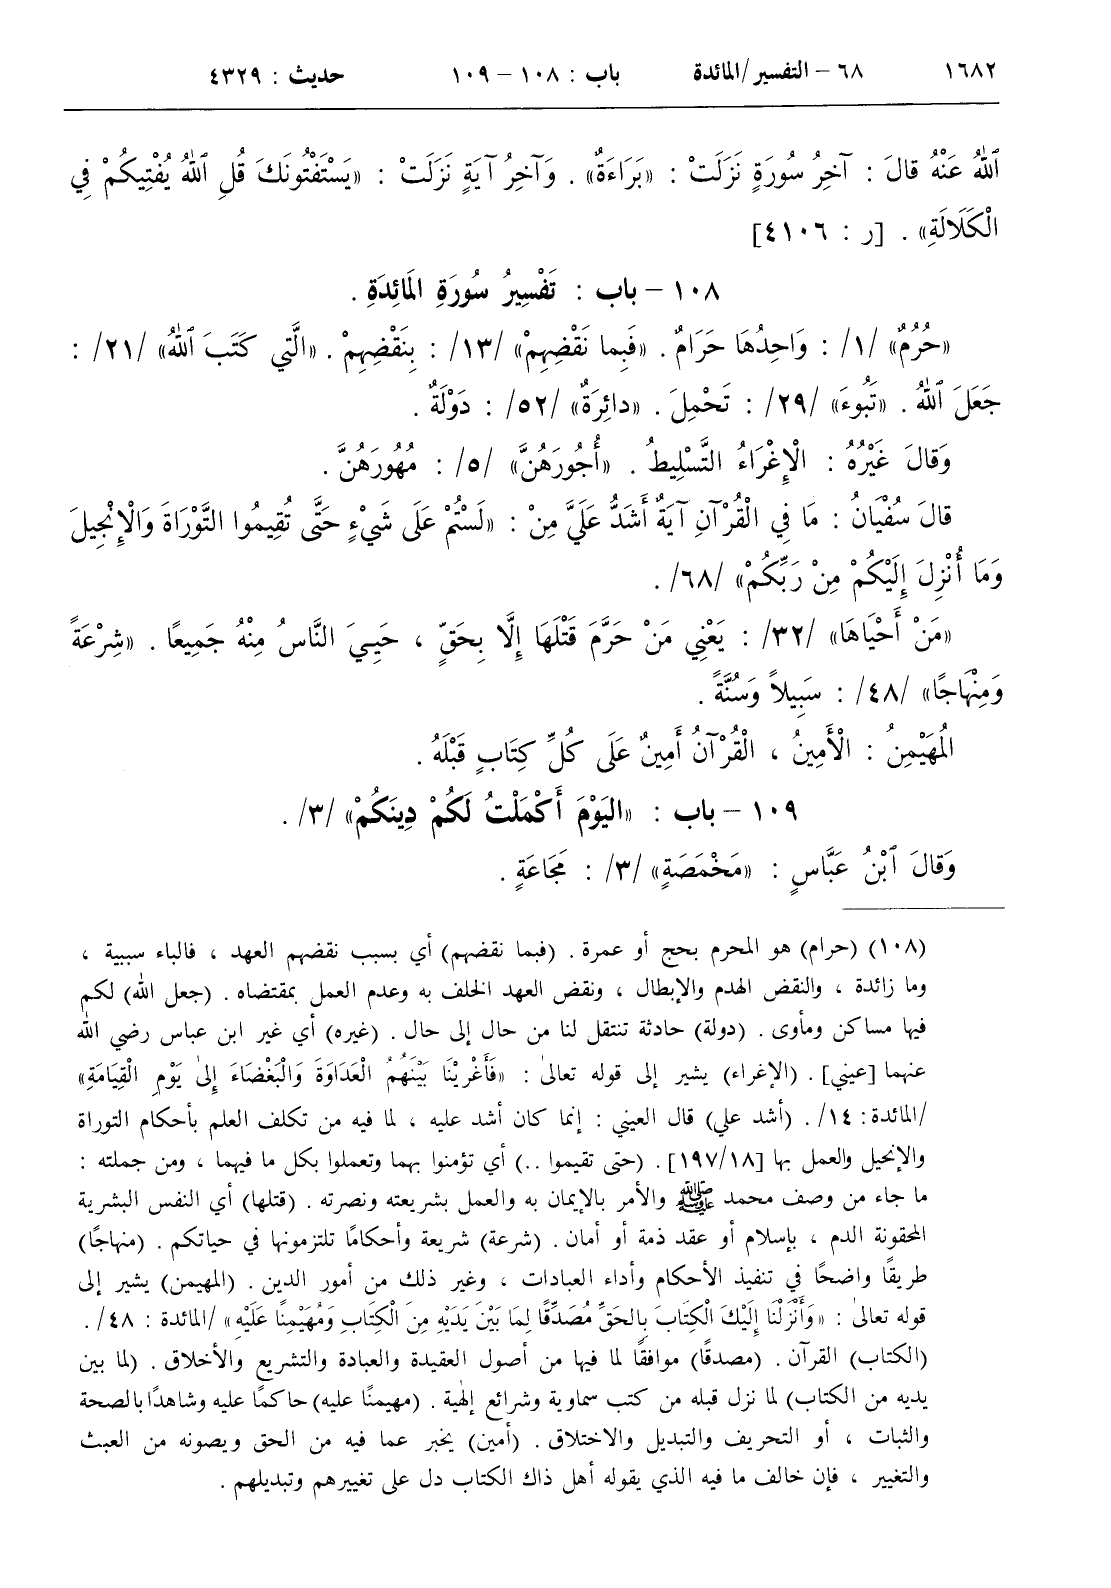 ١٦٨٢ ٦٨ – التفسير/المائدة باب : ١٠٨ – ١٠٩ حديث : ٤٣٢٩
ٱللّٰهُ عَنْهُ قالَ : آخِرُ سُورَةٍ نَزَلَتْ : «بَرَاءَةٌ» . وَآخِرُ آيَةٍ نَزَلَتْ : «يَسْتَفْتُونَكَ قُلِ ٱللّٰهُ يُفْتِيكُمْ فِي
الْكَلَالَةِ» . [ر : ٤١٠٦]
١٠٨ – باب : تَفْسِيرُ سُورَةِ المَائِدَةِ .
«حُرُمٌ» /١/ : وَاحِدُهَا حَرَامٌ . «فَبِما نَقْضِهِمْ» /١٣/ : بِنَقْضِهِمْ . «الَّتِي كَتَبَ ٱللّٰهُ» /٢١/ :
جَعَلَ ٱللّٰهُ . «تَبُوءَ» /٢٩/ : تَحْمِلَ . «دائِرَةٌ» /٥٢/ : دَوْلَةٌ .
وَقالَ غَيْرُهُ : الْإِغْرَاءُ التَّسْلِيطُ . «أُجُورَهُنَّ» /٥/ : مُهُورَهُنَّ .
قالَ سُفْيَانُ : مَا فِي الْقُرْآنِ آيَةٌ أَشَدُّ عَلَيَّ مِنْ : «لَسْتُمْ عَلَى شَيْءٍ حَتَّى تُقِيمُوا التَّوْرَاةَ وَالْإِنْجِيلَ
وَمَا أُنْزِلَ إِلَيْكُمْ مِنْ رَبِّكُمْ» /٦٨/ .
«مَنْ أَحْيَاهَا» /٣٢/ : يَعْنِي مَنْ حَرَّمَ قَتْلَهَا إِلَّا بِحَقٍّ ، حَيِيَ النَّاسُ مِنْهُ جَمِيعًا . «شِرْعَةً
وَمِنْهَاجًا» /٤٨/ : سَبِيلاً وَسُنَّةً .
الْمُهَيْمِنُ : الْأَمِينُ ، الْقُرْآنُ أَمِينٌ عَلَى كُلِّ كِتَابٍ قَبْلَهُ .
١٠٩ – باب : «الْيَوْمَ أَكْمَلْتُ لَكُمْ دِينَكُمْ» /٣/ .
وَقالَ ٱبْنُ عَبَّاسٍ : «مَخْمَصَةٍ» /٣/ : مَجَاعَةٍ .
(١٠٨) (حرام) هو المحرم بحج أو عمرة . (فبما نقضهم) أي بسبب نقضهم العهد ، فالباء سببية ،
وما زائدة ، والنقض الهدم والإبطال ، ونقض العهد الخلف به وعدم العمل بمقتضاه . (جعل الله) لكم
فيها مساكن ومأوى . (دولة) حادثة تنتقل لنا من حال إلى حال . (غيره) أي غير ابن عباس رضي الله
عنهما [عيني] . (الإغراء) يشير إلى قوله تعالىٰ : «فَأَغْرَيْنَا بَيْنَهُمُ الْعَدَاوَةَ وَالْبَغْضَاءَ إِلىٰ يَوْمِ الْقِيَامَةِ»
/المائدة: ١٤/ . (أشد علي) قال العيني : إنما كان أشد عليه ، لما فيه من تكلف العلم بأحكام التوراة
والإنجيل والعمل بها [١٩٧/١٨] . (حتى تقيموا ..) أي تؤمنوا بهما وتعملوا بكل ما فيهما ، ومن جملته :
ما جاء من وصف محمد ﷺ والأمر بالإيمان به والعمل بشريعته ونصرته . (قتلها) أي النفس البشرية
المحقونة الدم ، بإسلام أو عقد ذمة أو أمان . (شرعة) شريعة وأحكامًا تلتزمونها في حياتكم . (منهاجًا)
طريقًا واضحًا في تنفيذ الأحكام وأداء العبادات ، وغير ذلك من أمور الدين . (المهيمن) يشير إلى
قوله تعالىٰ : «وَأَنْزَلْنَا إِلَيْكَ الْكِتَابَ بِالحَقِّ مُصَدِّقًا لِمَا بَيْنَ يَدَيْهِ مِنَ الْكِتَابِ وَمُهَيْمِنًا عَلَيْهِ» /المائدة : ٤٨/ .
(الكتاب) القرآن . (مصدقًا) موافقًا لما فيها من أصول العقيدة والعبادة والتشريع والأخلاق . (لما بين
يديه من الكتاب) لما نزل قبله من كتب سماوية وشرائع إلٰهية . (مهيمنًا عليه) حاكمًا عليه وشاهدًا بالصحة
والثبات ، أو التحريف والتبديل والاختلاق . (أمين) يخبر عما فيه من الحق ويصونه من العبث
والتغيير ، فإن خالف ما فيه الذي يقوله أهل ذاك الكتاب دل على تغييرهم وتبديلهم .